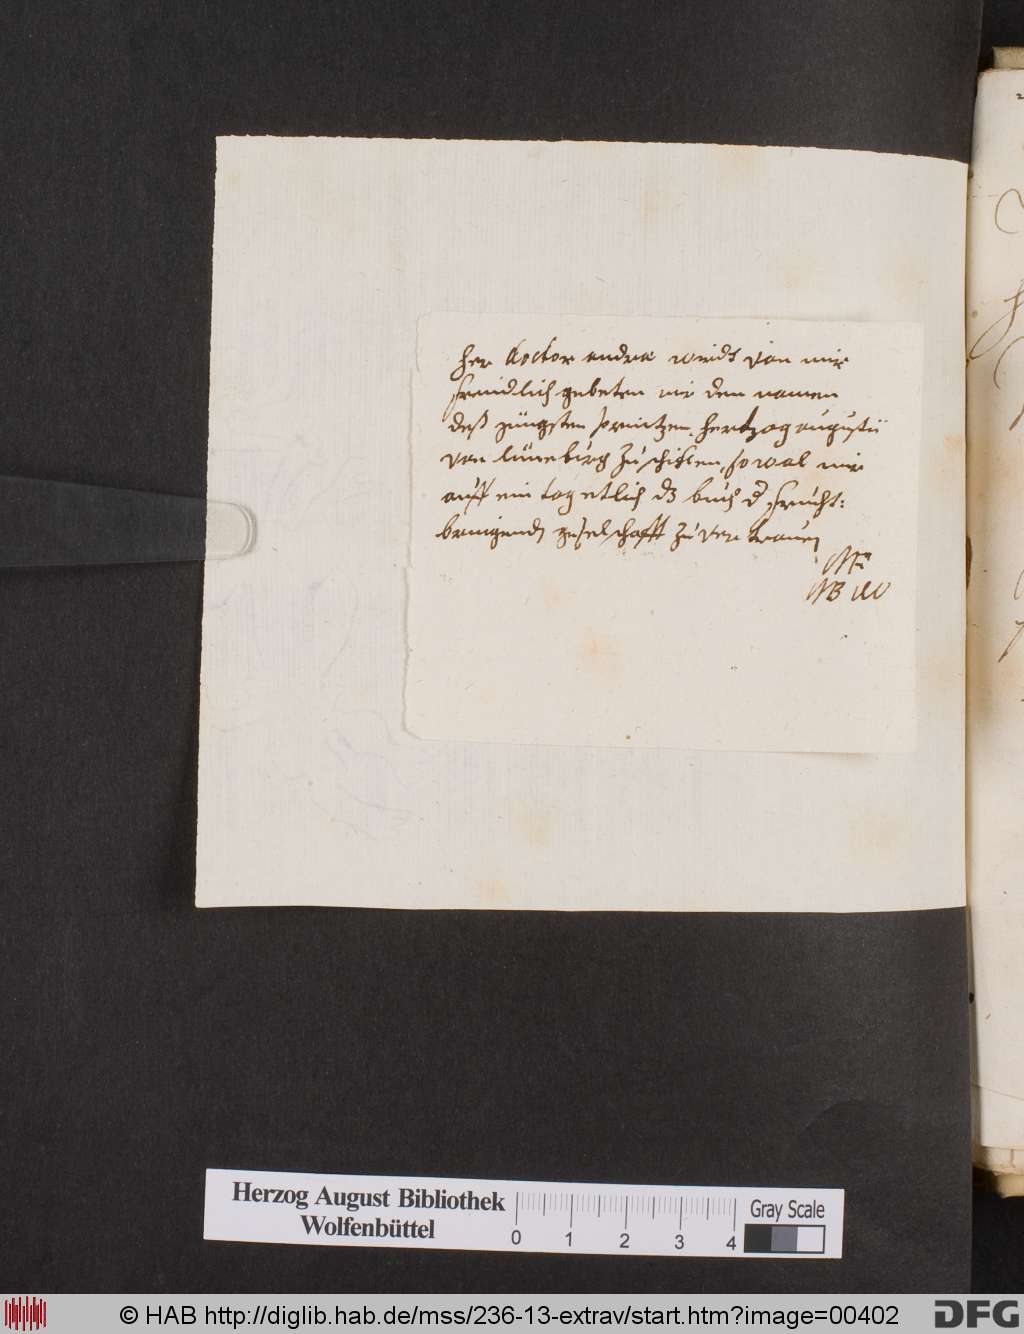 her doctor andræ wirdt von mir
freindlich gebeten mir den namen
deß jüngsten printzen hertzog augusti
von lüneburg zu schicken, sowol mir
auff ein tag etlich dz buch d frucht:
bringendn geselschafft zu vertrauen
Herzog August Bibliothek
Wolfenbüttel
0 1 2 3 4
Gray Scale
© HAB http://diglib.hab.de/mss/236-13-extrav/start.htm?image=00402
DFG